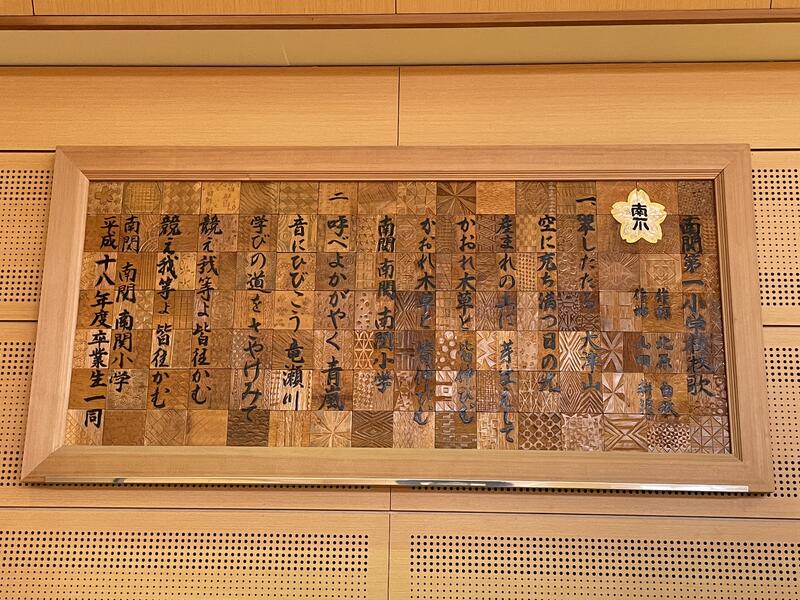 南関第一小学校校歌
作詞 北原 白秋
作曲 山田 耕筰
南小
一、翠したたる 大津山
空に充ち満つ日の光
産まれの土に 芽生えして
かおれ木草と 皆伸びむ
かおれ木草と 皆伸びむ
南関 南関 南関小学
二 呼べよかがやく 青嵐
音にひびこう 竜瀬川
学びの道をさやけみて
競え我等よ 皆往かむ
競え我等よ 皆往かむ
南関 南関 南関小学
平成 十八年度卒業生一同